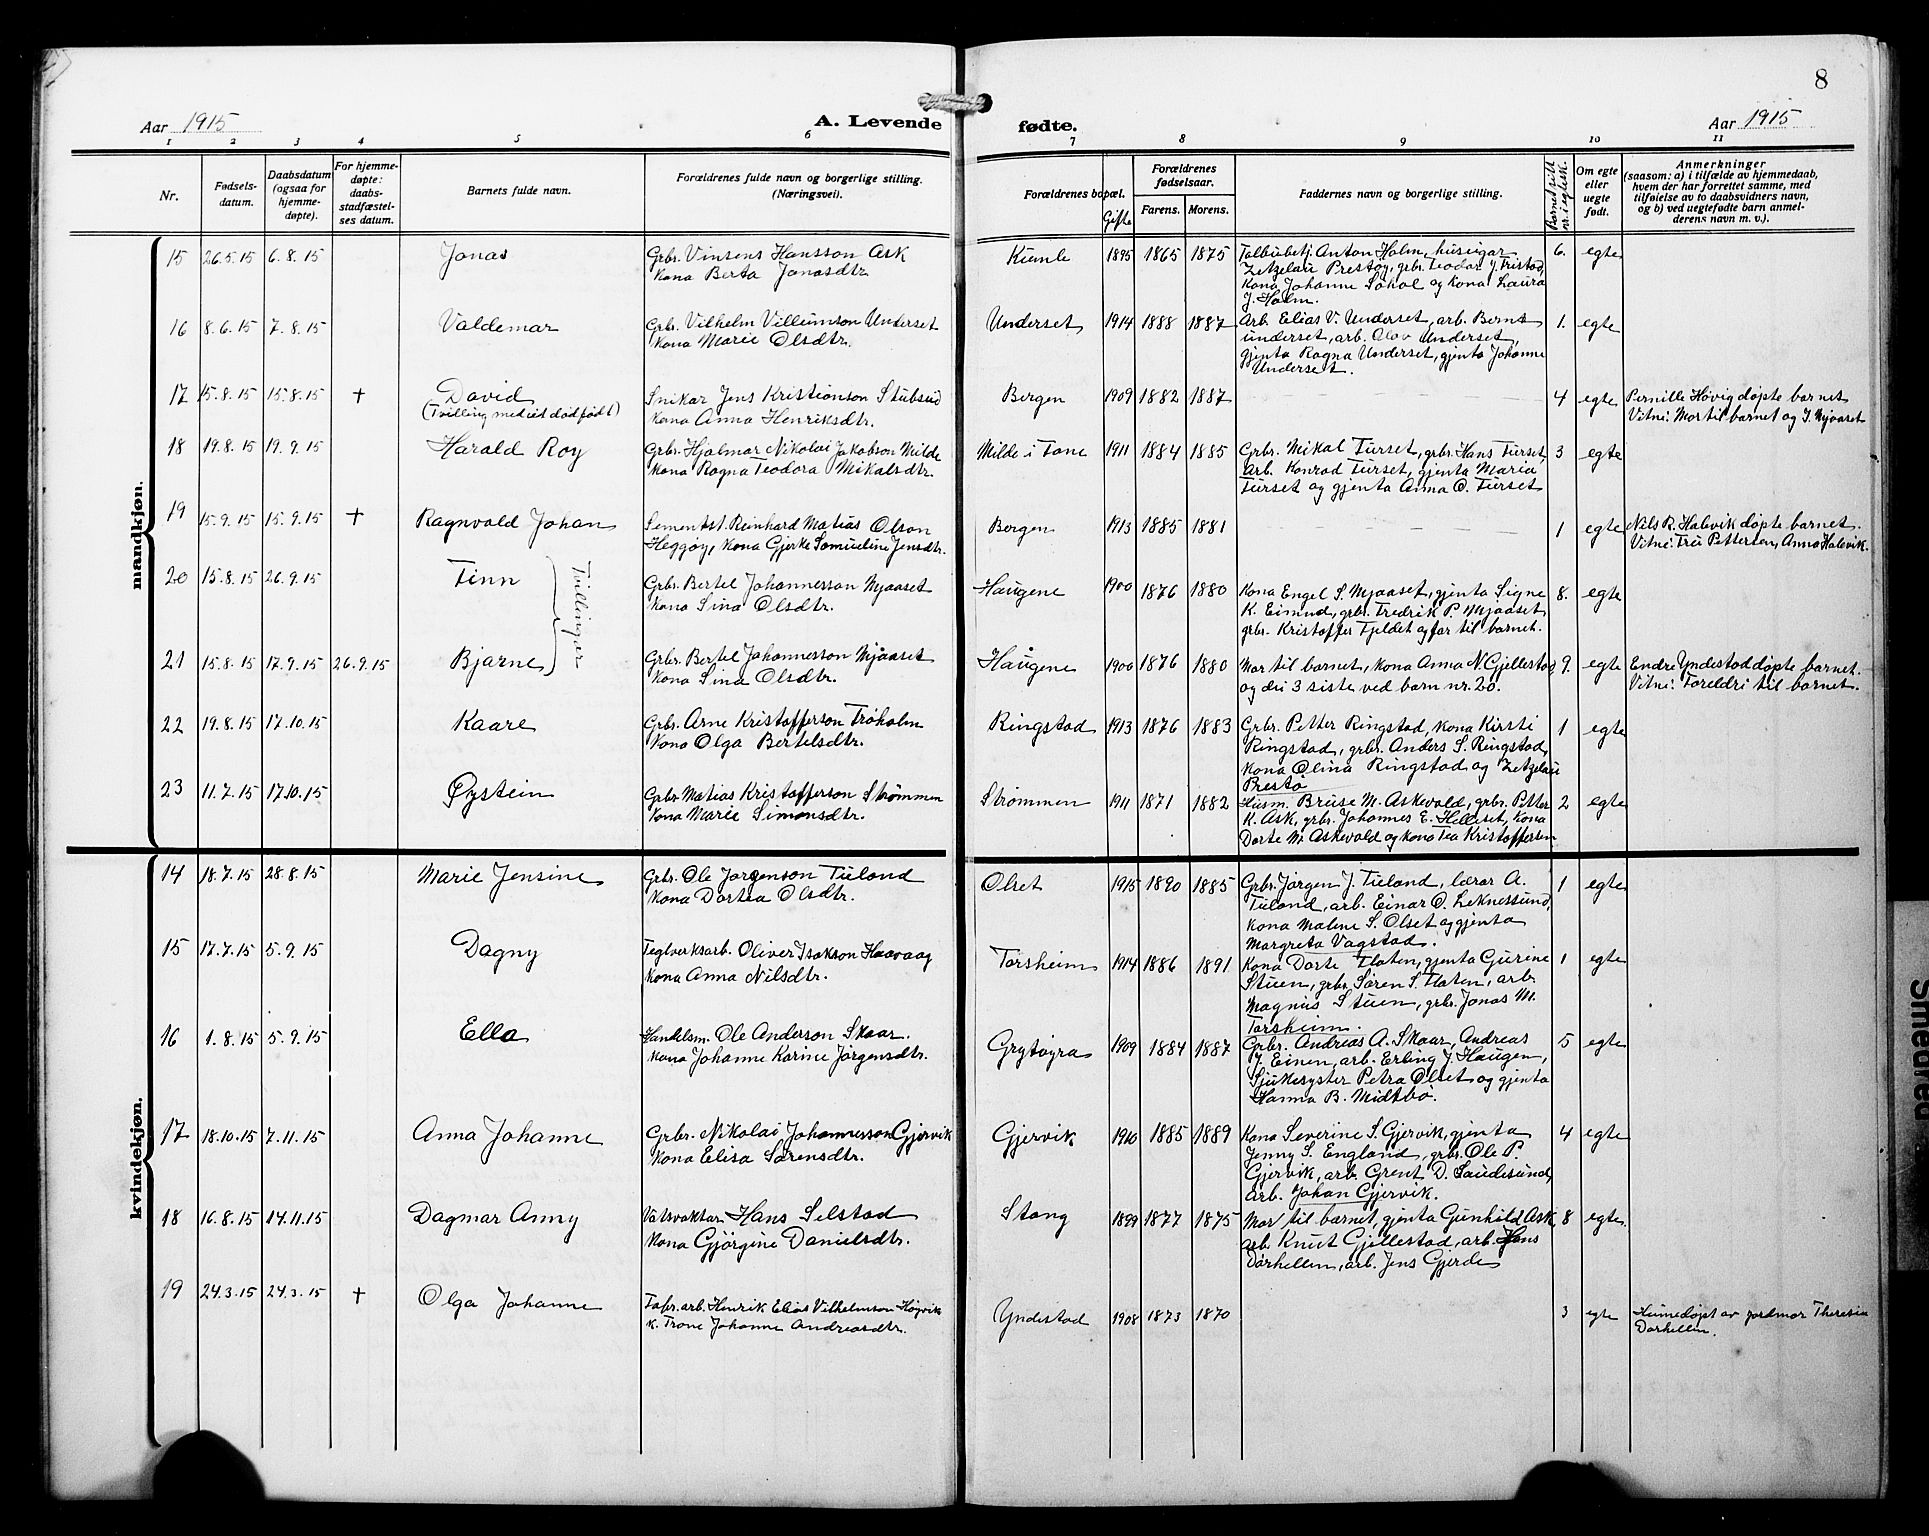 8
Aar 1915
A. Levende fødte.
Aar 1915
1 2 3 4 5 6 7 8 9 10 11
Nr.
Fødsels-
datum.
Daabsdatum
(ogsaa for
hjemme-
døpte).
For hjemme-
døpte:
daabs-
stadfæstel-
ses datum.
Barnets fulde navn.
Forældrenes fulde navn og borgerlige stilling.
(Næringsvei).
Forældrenes bopæl.
Gifte
Forældrenes
fødselsaar.
Farens. Morens.
Faddernes navn og borgerlige stilling.
Om egte
eller
uegte
født.
Anmerkninger
(saasom: a) i tilfælde av hjemmedaab,
hvem der har forrettet samme, med
tilføielse av to daabsvidners navn,
og b) ved uegtefødte barn anmel-
derens navn m. v.).
mandkjøn.
15 26.5.15 6.8.15 Jonas Grbr. Vinsens Hansson Ask Kumle 1895 1865 1875 Tolbubetj. Anton Holm, huseigar 6. egte
Kona Berta Jonasdtr. Zetzelau Prestøy, grbr. Teodor J.
Kona Johanne Sokol og Kona Laura
J. Holm.
16 8.6.15 7.8.15 Valdemar Grbr. Vilhelm Villumson Underset Underset 1914 1888 1887 Arb. Elias V. Underset, arb. Bernt 1. egte
Kona Marie Olsdtr. underset, arb. Olov Underset,
gjenta Ragna Underset, gjenta Johanne
Underset.
17 15.8.15 15.8.15 + David Snikar Jens Kristianson Stubsud Bergen 1909 1882 1887 4 egte Pernille Høvig døpte barnet
(Tvilling med eit dødfødt) Kona Anna Henriksdtr. Vitne: Mor til barnet og J. Mjaaset
18 19.8.15 19.9.15 Harald Roy Grbr. Hjalmar Nikolai Jakobson Milde Milde i Fane 1911 1884 1885 Grbr. Mikal Furset, grbr. Hans Furset, 3 egte
Kona Ragna Teodora Mikalsdtr. Arb. Konrad Furset, gjenta Maria
Furset og gjenta Anna O. Furset
19 15.9.15 15.9.15 + Ragnvald Johan Sementst. Reinhard Matias Olson Bergen 1913 1885 1881 1 egte Nils R. Halsvik døpte barnet.
Heggøy, Kona Gjerke Samueline Jensdtr. Vitne: Fru Pettersen, Anna Halsvik.
20 15.8.15 26.9.15 Finn Tvillinger Grbr. Bertel Johannesson Mjaaset Haugene 1900 1876 1880 Kona Engel S. Mjaaset, gjenta Signe 8. egte
Kona Sina Olsdtr. K. Eimind, grbr. Fredrik P. Mjaaset
grbr. Kristoffer Fjeldet og far til barnet.
21 15.8.15 17.9.15 26.9.15 Bjarne Grbr. Bertel Johannesson Mjaaset Haugene 1900 1876 1880 Mor til barnet, Kona Anna N. Gjellestad, 9. egte Endre Yndestad døpte barnet.
Kona Sina Olsdtr. og dei 3 siste ved barn nr. 20. Vitne: Foreldri til barnet.
22 19.8.15 17.10.15 Kaare Grbr. Arne Kristofferson Troholm Ringstad 1913 1876 1883 Grbr. Petter Ringstad, Kona Kirsti 1 egte
Kona Olga Bertelsdtr. Ringstad, grbr. Anders S. Ringstad,
Kona Olina Ringstad og Zetzelau
Prestø
23 11.7.15 17.10.15 Øystein Grbr. Matias Kristofferson Strømmen Strømmen 1911 1871 1882 Husm. Bruse M. Askevold, grbr. Petter 2 egte
Kona Marie Simonsdtr. K. Ask, grbr. Johannes E. Helleset, Kona
Dorte M. Askevold og Kona Tea Kristofferson
kvindekjøn.
14 18.7.15 28.8.15 Marie Jensine Grbr. Ole Jørgenson Tueland Olset 1915 1890 1885 Grbr. Jørgen J. Tueland, lærar A. 1 egte
Kona Dortea Olsdtr. Tueland, arb. Einar O. Leknessund,
Kona Malene S. Olset og gjenta
Margreta Vagstad.
15 17.7.15 5.9.15 Dagny Teglverksarb. Oliver Isakson Haavaag Torsheim 1914 1886 1891 Kona Dorte Floten, gjenta Gurine 1 egte
Kona Anna Nilsdtr. Stuen, grbr. Søren S. Floten, arb.
Magnus Stuen, grbr. Jonas M.
Torsheim.
16 1.8.15 5.9.15 Ella Handelsm. Ole Anderson Skaar Grytøyra 1909 1884 1887 Grbr. Andreas A. Skaar, Andreas 5 egte
Kona Johanne Karine Jørgensdtr. J. Einen, arb. Erling J. Haugen,
Sjukesyster Petra Olset og gjenta
Hanna B. Midtbø.
17 18.10.15 7.11.15 Anna Johanne Grbr. Nikolai Johannesson Gjervik Gjervik 1910 1885 1889 Kona Severine S. Gjervik, gjenta 4 egte
Kona Elisa Sørensdtr. Jenny S. England, grbr. Ole P.
Gjervik, arb. Grent D. Saudesund,
arb. Johan Gjervik.
18 16.8.15 14.11.15 Dagmar Anny Vatsvaktar Hans Selstad Stang 1899 1877 1875 Mor til barnet, gjenta Gunhild Ask 8 egte
Kona Gjørgine Danielsdtr. arb. Knut Gjellestad, arb. Hans
Dørhellen, arb. Jens Gjerde
19 24.3.15 24.3.15 + Olga Johanne Fabr. arb. Henrik Elias Vilhelmson Høyvik Yndestad 1908 1873 1870 3 egte Heimedøpt av jordmor Theresia
K. Trone Johanne Andreasdtr. Dørhellen.